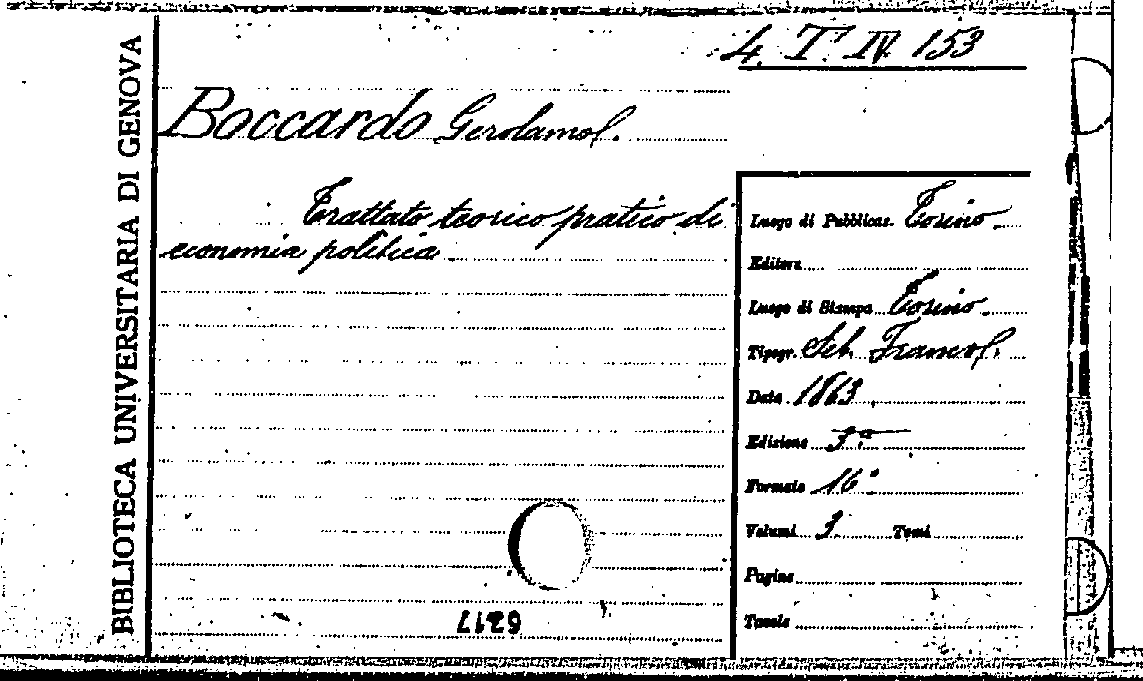 4. T. IV. 153
BIBLIOTECA UNIVERSITARIA DI GENOVA
Boccardo Gerolamo
Trattato teorico pratico di
economia politica
Luogo di Pubblicaz. Torino
Editore
Luogo di Stampa Torino
Tipogr. Seb. Franco
Data 1863
Edizione
Formato 16°
Volumi 3. Tomi
Pagine
Tavole